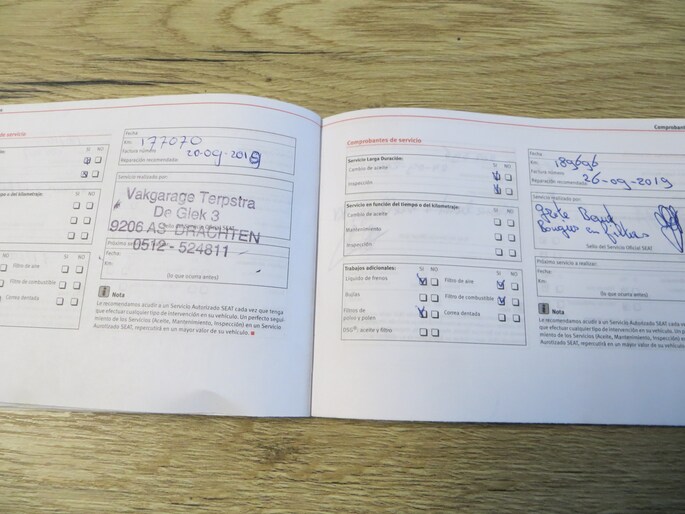 de servicio
SI NO
Fecha
Km: 177070
Factura número
20-09-2018
Reparación recomendada:
Servicio realizado por:
Vakgarage Terpstra
De Giek 3
9206 AS DRACHTEN
0512 - 524811
Fecha:
Km:
(lo que ocurra antes)
mpo o del kilometraje:
SI NO
SI NO
Filtro de aire
Filtro de combustible
Correa dentada
Nota
Le recomendamos acudir a un Servicio Autorizado SEAT cada vez que tenga
que efectuar cualquier tipo de intervención en su vehículo. Un perfecto segui-
miento de los Servicios (Aceite, Mantenimiento, Inspección) en un Servicio
Autorizado SEAT, repercutirá en un mayor valor de su vehículo.
Comprobantes de servicio
Servicio Larga Duración:
SI NO
Cambio de aceite
Inspección
Servicio en función del tiempo o del kilometraje:
SI NO
Cambio de aceite
Mantenimiento
Inspección
Trabajos adicionales:
SI NO
SI NO
Líquido de frenos
Filtro de aire
Bujías
Filtro de combustible
Filtros de
polvo y polen
Correa dentada
DSG®: aceite y filtro
Fecha
Km: 189696
Factura número
Reparación recomendada: 26-09-2019
Servicio realizado por:
Sello del Servicio Oficial SEAT
Próximo servicio a realizar:
Fecha:
Km:
(lo que ocurra antes)
Nota
Le recomendamos acudir a un Servicio Autorizado SEAT cada vez
que efectuar cualquier tipo de intervención en su vehículo. Un perf
miento de los Servicios (Aceite, Mantenimiento, Inspección) en
Autorizado SEAT, repercutirá en un mayor valor de su vehículo.